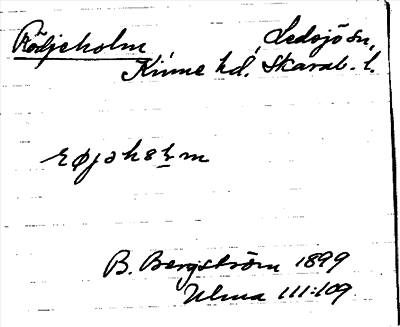 Rödjeholm Ledsjö sn,
Kinne hd, Skarab. l.
røjɘhɘɫm
B. Bergström 1899
Ulma 111:109